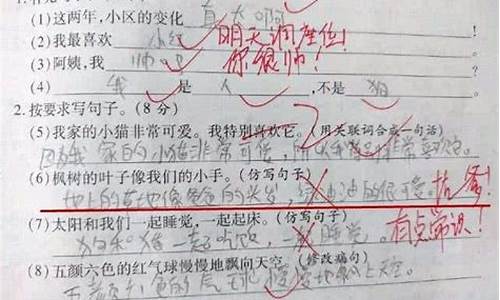 (1)这两年,小区的变化 真大啊
(2)我最喜欢 小红 明天调座位!
(3)阿姨,我 帅吧 你很帅!
(4) 我 是 人 ,不是 狼
2.按要求写句子。(8分)
(5)我家的小猫非常可爱。我特别喜欢它。(用关联词合成一句话)
因为我家的小猫非常可爱,所以我非常喜欢它。
(6)枫树的叶子像我们的小手。(仿写句子)
地上的草地像爸爸的头发,绿油油的很可爱。抗议!
(7)太阳和我们一起睡觉,一起起床。(仿写句子)
一起吃饭,一起睡觉。有点常识!
(8)五颜六色的红气球慢慢地飘向天空。(修改病句)
五颜六色的气球慢慢地飘上天空。